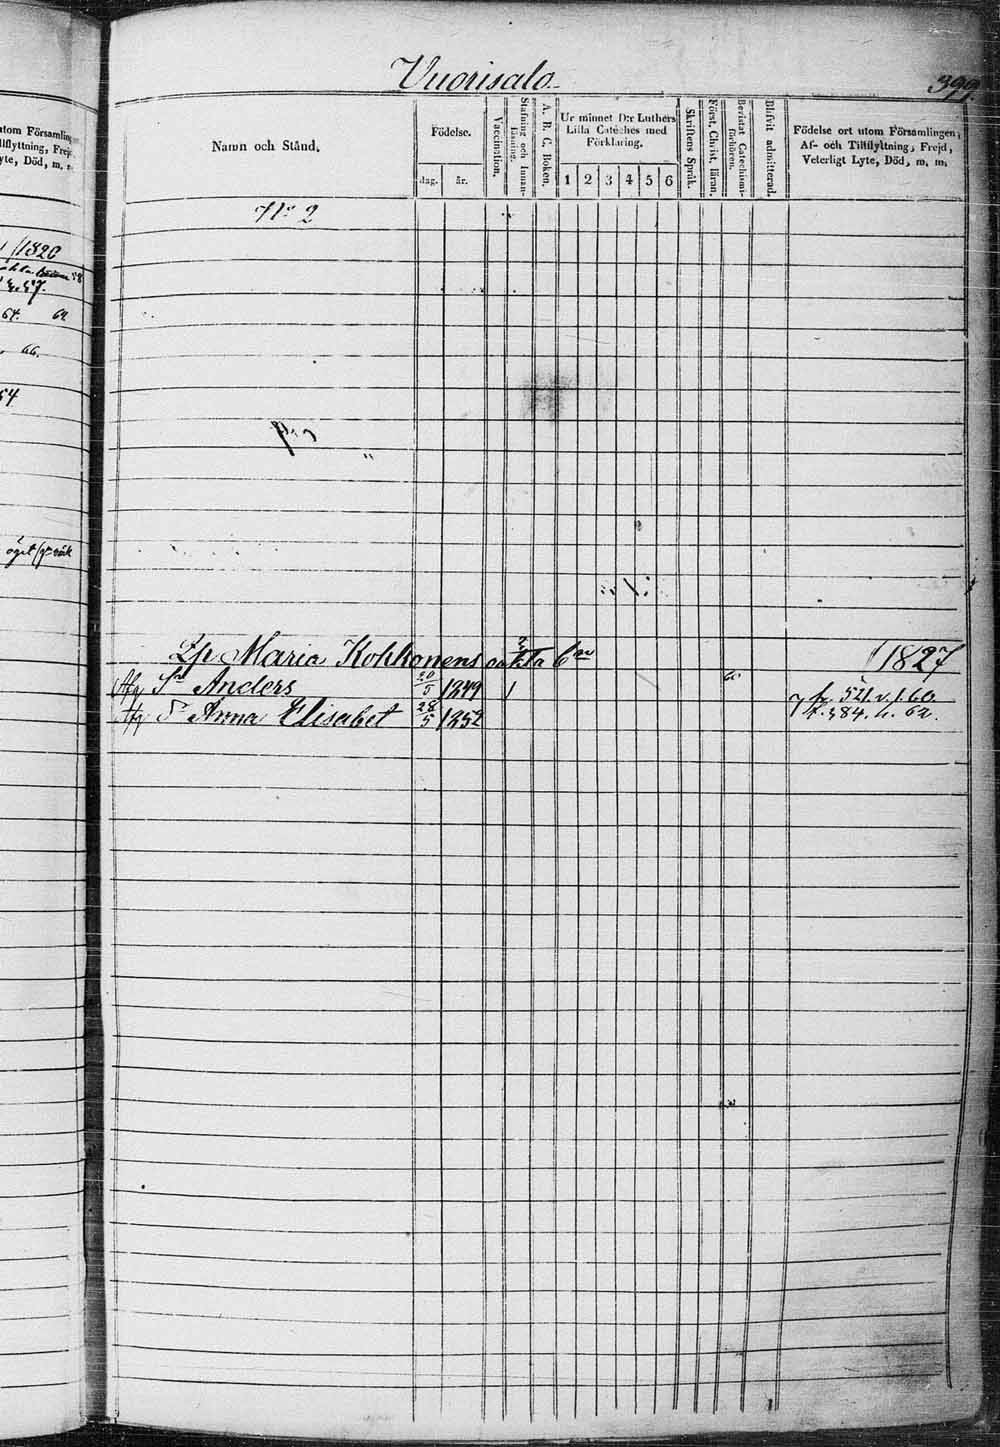 utom Församling
Tillflyttning, Frejd
yte, Död, m. m.
/1820
57.
64. 62
66.
54
öget
Vuorisalo
399.
Namn och Stånd.
Födelse.
dag. år.
Vaccination.
Stafning och Innan-
läsning.
A. B. C. Boken.
Ur minnet D:r Luthers
Lilla Cateches med
Förklaring.
1 2 3 4 5 6
Skriftens Språk.
Först. Christ. läran.
Bevistat Catechismi-
förhören.
Blifvit admitterad.
Födelse ort utom Församlingen,
Af- och Tillflyttning, Frejd,
Veterligt Lyte, Död, m. m.
No 2
Lp Maria Kohkonens oäkta bn 1827
Sn Anders 20/5 1849 1 60 fr. 521. v. f. 60.
D Anna Elisabet 28/5 1852 f. 384. h. 62.